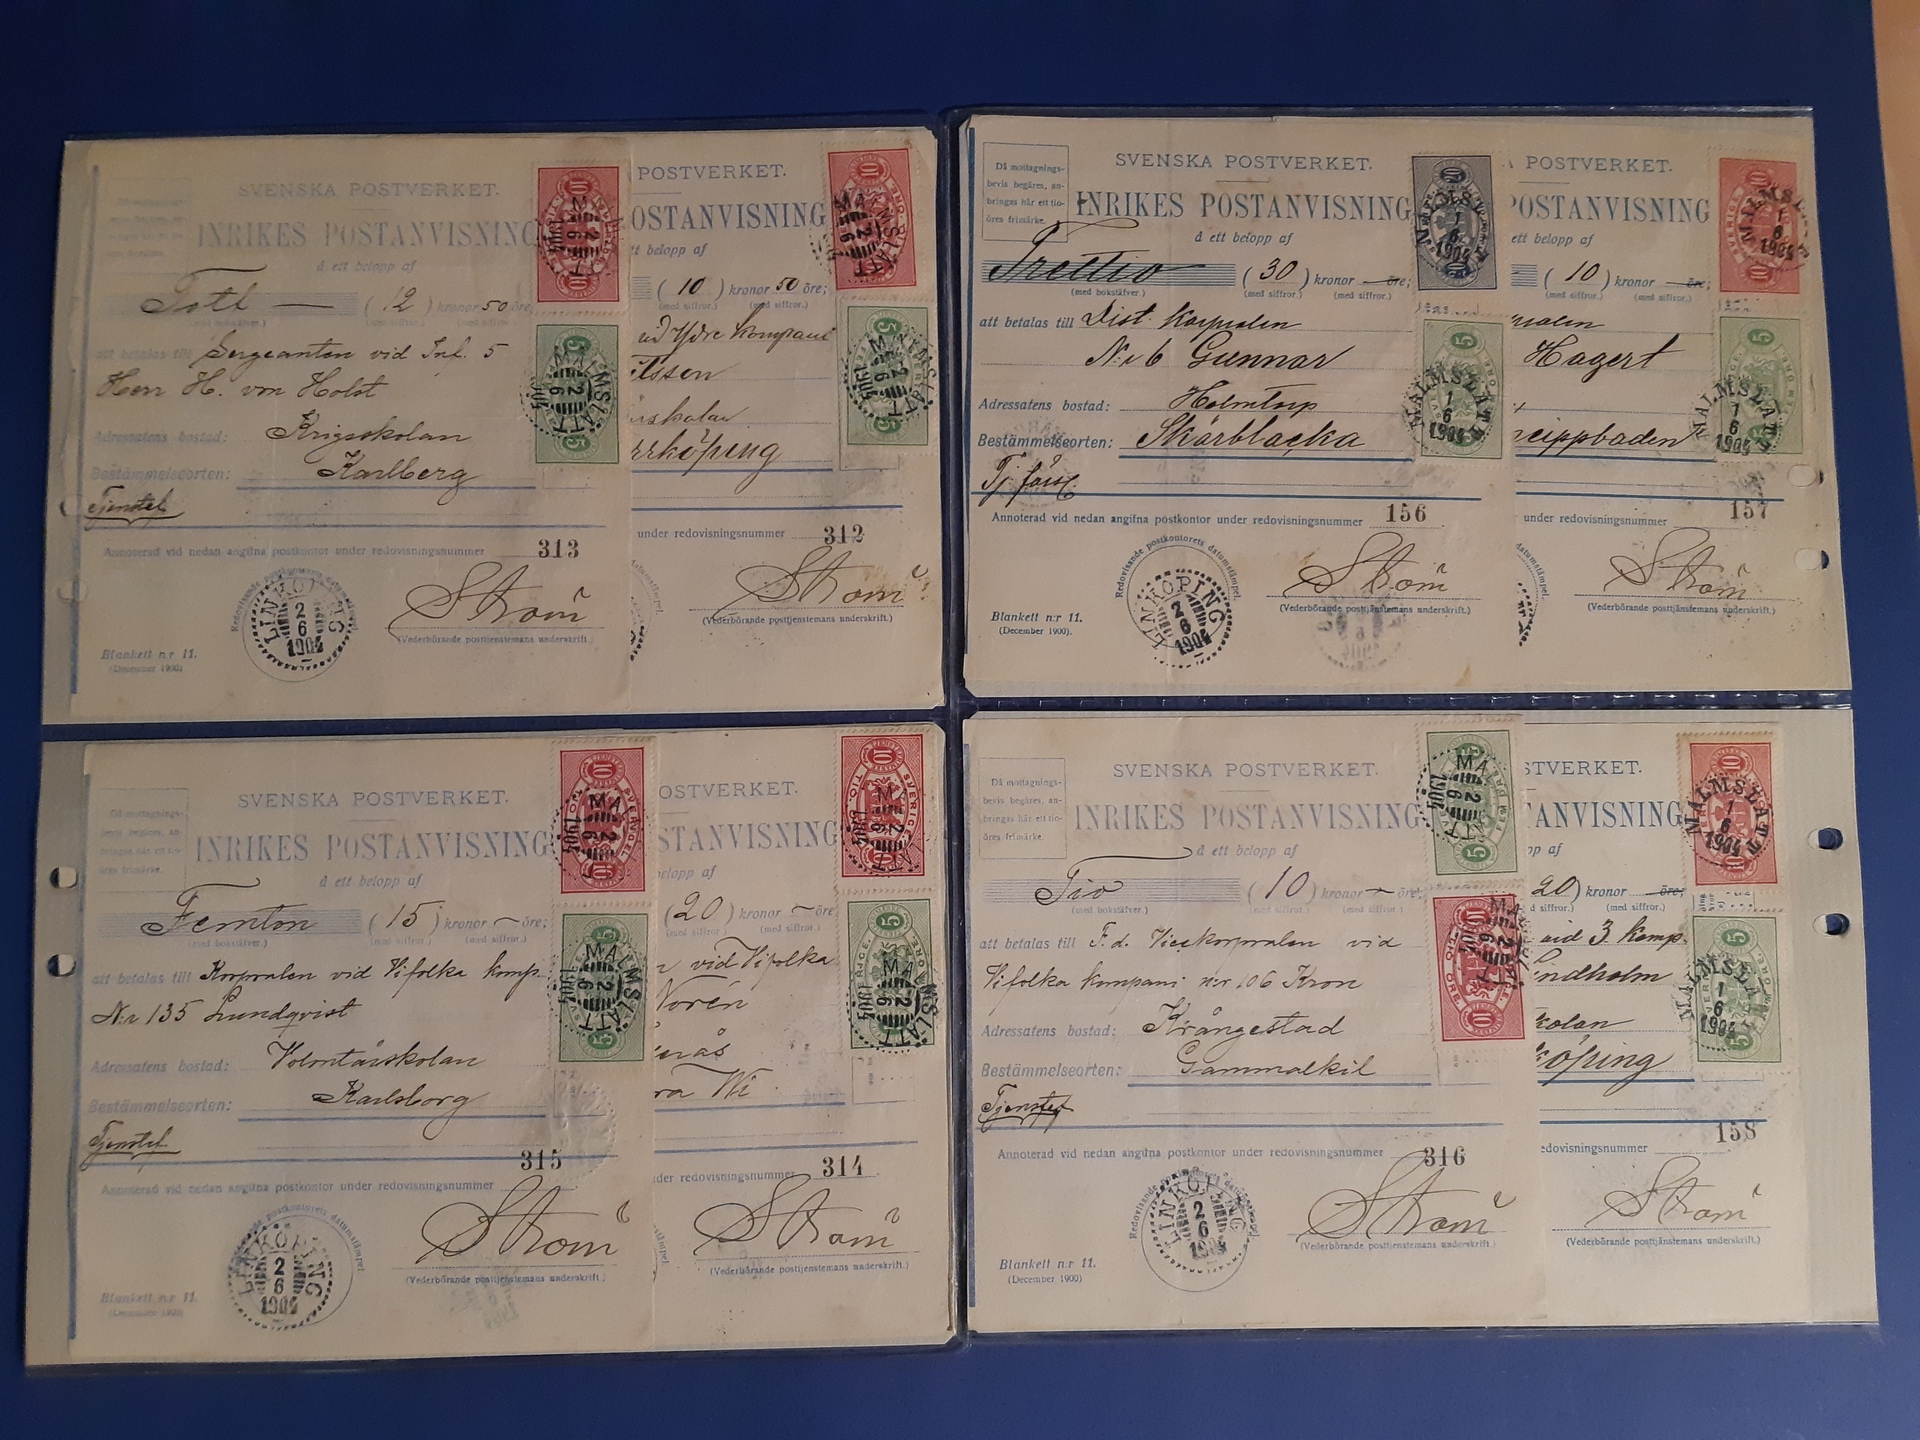 SVENSKA POSTVERKET.
INRIKES POSTANVISNING
å ett belopp af
Tolf (12) kronor 50 öre;
(med bokstäfver.) (med siffror.) (med siffror.)
att betalas till Sergeanten vid Inf. 5
Herr H. von Holst
Adressatens bostad: Krigsskolan
Bestämmelseorten: Karlberg
Tjenstef.
Annoterad vid nedan angifna postkontor under redovisningsnummer 313
Redovisande postkontorets datumstämpel.
LINKÖPING
2
6
1904
Ström
(Vederbörande posttjenstemans underskrift.)
Blankett n:r 11.
(December 1900)
10
TIO ÖRE
5
MALMSLÄTT
2
6
1904
POSTVERKET.
OSTANVISNING
tt belopp af
(10) kronor 50 öre;
(med siffror.) (med siffror.)
vid Ydre kompani
ilsson
skolan
rrköping
under redovisningsnummer 312
Ström
(Vederbörande posttjenstemans underskrift.)
10
5
MALMSLÄTT
2
6
1904
Då mottagnings-
bevis begäres, an-
bringas här ett tio-
öres frimärke.
SVENSKA POSTVERKET.
INRIKES POSTANVISNING
å ett belopp af
Trettio (30) kronor öre;
(med bokstäfver.) (med siffror.) (med siffror.)
att betalas till Dist. Korpralen
N:r 6 Gunnar
Adressatens bostad: Holmtorp
Bestämmelseorten: Skärblacka
Annoterad vid nedan angifna postkontor under redovisningsnummer 156
Redovisande postkontorets datumstämpel.
LINKÖPING
2
6
1904
Ström
(Vederbörande posttjänstemans underskrift.)
Blankett n:r 11.
(December 1900).
MALMSLÄTT
1
6
1904
5
MALMSLÄTT
1
6
1904
POSTVERKET.
POSTANVISNING
tt belopp af
(10) kronor öre;
(med siffror.) (med siffror.)
ralen
Hagert
neippbaden
under redovisningsnummer 157
Ström
(Vederbörande posttjänstemans underskrift.)
10
MALMSLÄTT
1
6
1904
5
MALMSLÄTT
1
6
1904
Då mottagnings-
bevis begäres, an-
bringas här ett tio-
öres frimärke.
SVENSKA POSTVERKET.
INRIKES POSTANVISNING
å ett belopp af
Femton (15) kronor öre;
(med bokstäfver.) (med siffror.) (med siffror.)
att betalas till Korpralen vid Vifolka komp.
N:r 135 Lundqvist
Adressatens bostad: Volontärskolan
Bestämmelseorten: Karlsborg
Tjenstef.
315
Annoterad vid nedan angifna postkontor under redovisningsnummer
LINKÖPING
2
6
1904
Ström
(Vederbörande posttjenstemans underskrift.)
Blankett n:r 11.
(December 1900)
10
SVERIGE
MALMSLÄTT
2
6
1904
5
MALMSLÄTT
2
6
1904
OSTVERKET.
STANVISNING
belopp af
(20) kronor öre
(med siffror.) (med siffror.)
vid Vifolka
Norén
ra Wi
der redovisningsnummer 314
Ström
(Vederbörande posttjenstemans underskrift.)
10
SVERIGE
2
6
1904
5
MALMSLÄTT
2
6
1904
Då mottagnings-
bevis begäres, an-
bringas här ett tio-
öres frimärke.
SVENSKA POSTVERKET.
INRIKES POSTANVISNING
å ett belopp af
Tio (10) kronor öre;
(med bokstäfver.) (med siffror.) (med siffror.)
att betalas till F. d. Vicekorpralen vid
Vifolka kompani n:r 106 Kron
Adressatens bostad: Krångestad
Bestämmelseorten: Gammalkil
Tjenstef.
Annoterad vid nedan angifna postkontor under redovisningsnummer 316
LINKÖPING
2
6
1904
Ström
(Vederbörande posttjenstemans underskrift.)
Blankett n:r 11.
(December 1900)
5
MALMSLÄTT
2
6
1904
10
TIO ÖRE
STVERKET.
ANVISNING
pp af
20) kronor öre;
(med siffror.) (med siffror.)
vid 3. Komp.
indholm
kolan
köping
158
edovisningsnummer
Ström
(Vederbörande posttjänstemans underskrift.)
10
MALMSLÄTT
1
6
1904
5
MALMSLÄTT
1
6
1904